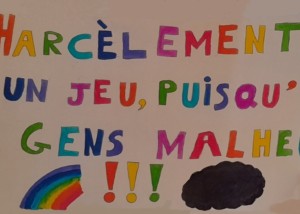 HARCÈLEMENT
UN JEU, PUISQU'
GENS MALHE
!!!